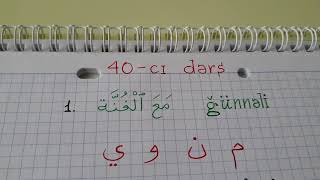 40-cı dərs
1. مَعَ ٱلْغُنَّة ğünnəli
م ن و ي